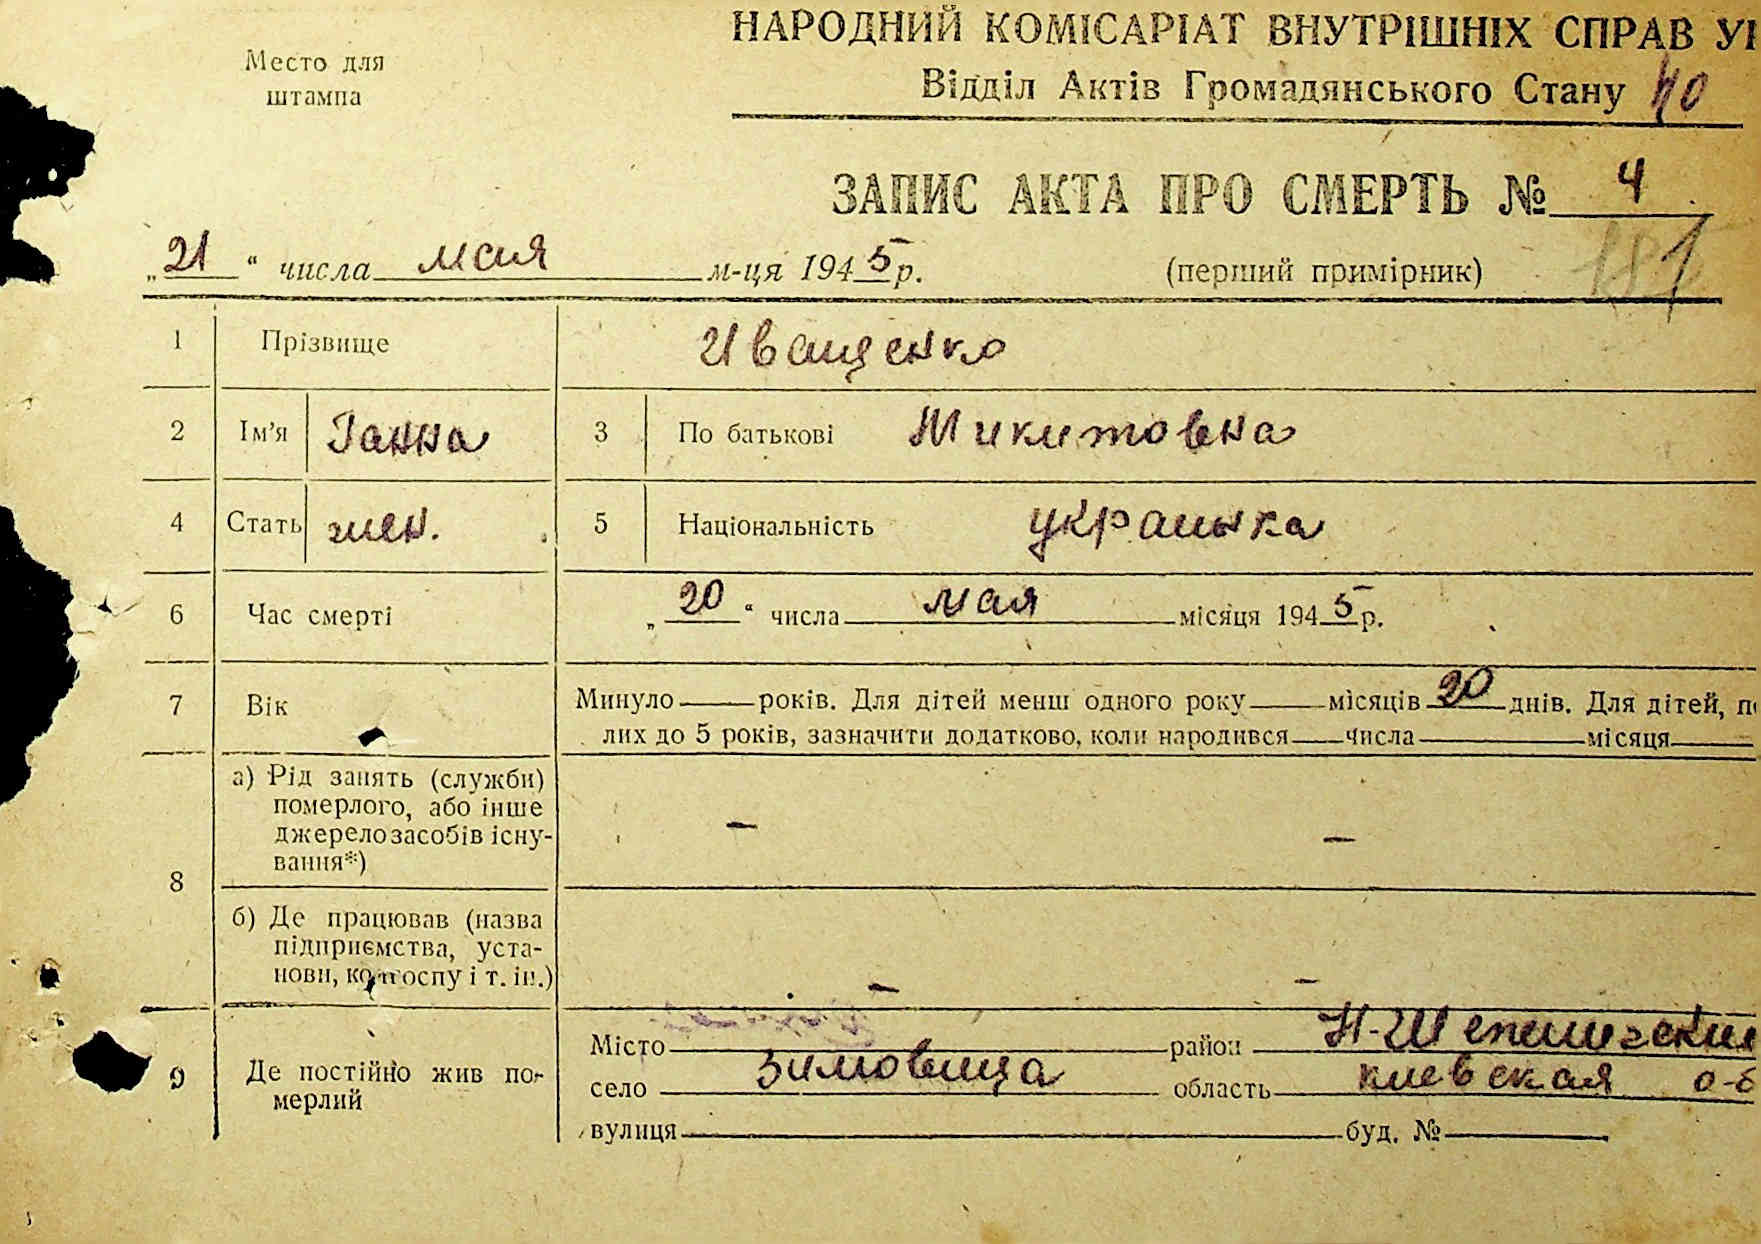 Место для
штампа
НАРОДНИЙ КОМІСАРІАТ ВНУТРІШНІХ СПРАВ УР
Відділ Актів Громадянського Стану 40
ЗАПИС АКТА ПРО СМЕРТЬ № 4
„21“ числа мая м-ця 1945 р. (перший примірник) 181
1 Прізвище Иващенко
2 Ім'я Ганна 3 По батькові Микитовна
4 Стать жен. 5 Національність украинка
6 Час смерті „20“ числа мая місяця 1945 р.
7 Вік Минуло — років. Для дітей менш одного року — місяців 20 днів. Для дітей, по
лих до 5 років, зазначити додатково, коли народився — числа — місяця —
8 а) Рід занять (служби)
померлого, або інше
джерело засобів існу-
вання*) — —
б) Де працював (назва
підприємства, уста-
нови, колгоспу і т. ін.) — —
9 Де постійно жив по-
мерлий
Місто район Н-Шепеличский
село Зимовища область киевская о-б
вулиця буд. №